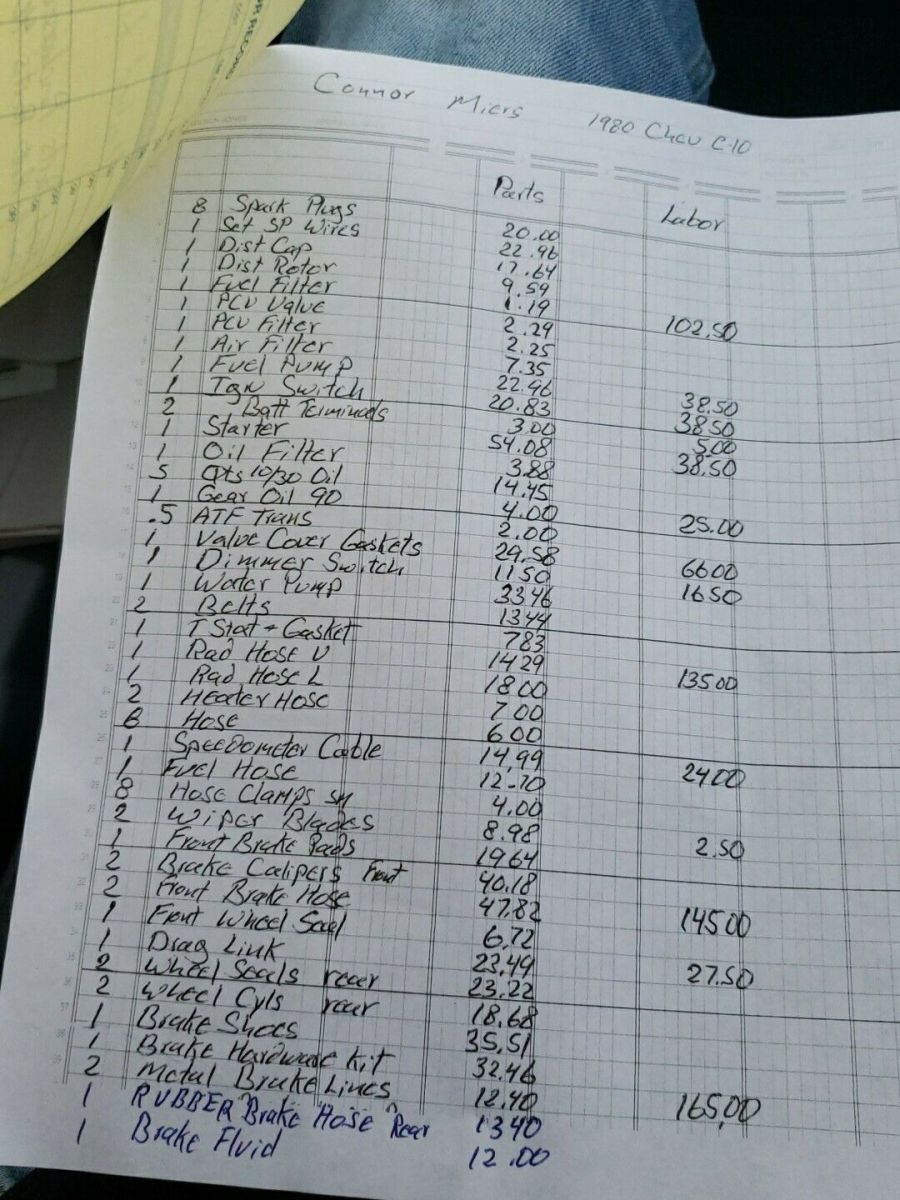 Connor Miers 1980 Chev C-10
Parts Labor
8 Spark Plugs 20.00
1 Set SP Wires 22.96
1 Dist Cap 17.64
1 Dist Rotor 9.59
1 Fuel Filter 1.19
1 PCV Valve 2.29 102.50
1 PCV Filter 2.25
1 Air Filter 7.35
1 Fuel Pump 22.46 38.50
1 Ign Switch 20.83 38.50
2 Batt Terminals 3.00 5.00
1 Starter 54.08 38.50
1 Oil Filter 3.88
5 Qts 10/30 Oil 14.45
1 Gear Oil 90 4.00 25.00
.5 ATF Trans 2.00
1 Valve Cover Gaskets 29.58 66 00
1 Dimmer Switch 11 50 16 50
1 Water Pump 33 46
2 Belts 13 44
1 T Stat + Gasket 7 83
1 Rad Hose U 14 29
1 Rad Hose L 18 00 135 00
2 Heater Hose 7 00
8 Hose 6.00
1 Speedometer Cable 14.99 24 00
1 Fuel Hose 12.70
8 Hose Clamps sm 4.00
2 Wiper Blades 8.98 2.50
1 Front Brake Pads 19 64
2 Brake Calipers Front 40.18
2 Front Brake Hose 47.82 145 00
1 Front Wheel Seal 6.72
1 Drag Link 23.49 27.50
2 Wheel Seals rear 23.22
2 Wheel Cyls rear 18.68
1 Brake Shoes 35.51
1 Brake Hardware Kit 32.46
2 Metal Brake Lines 12.40 165.00
1 RUBBER Brake Hose Rear 13 40
1 Brake Fluid 12.00